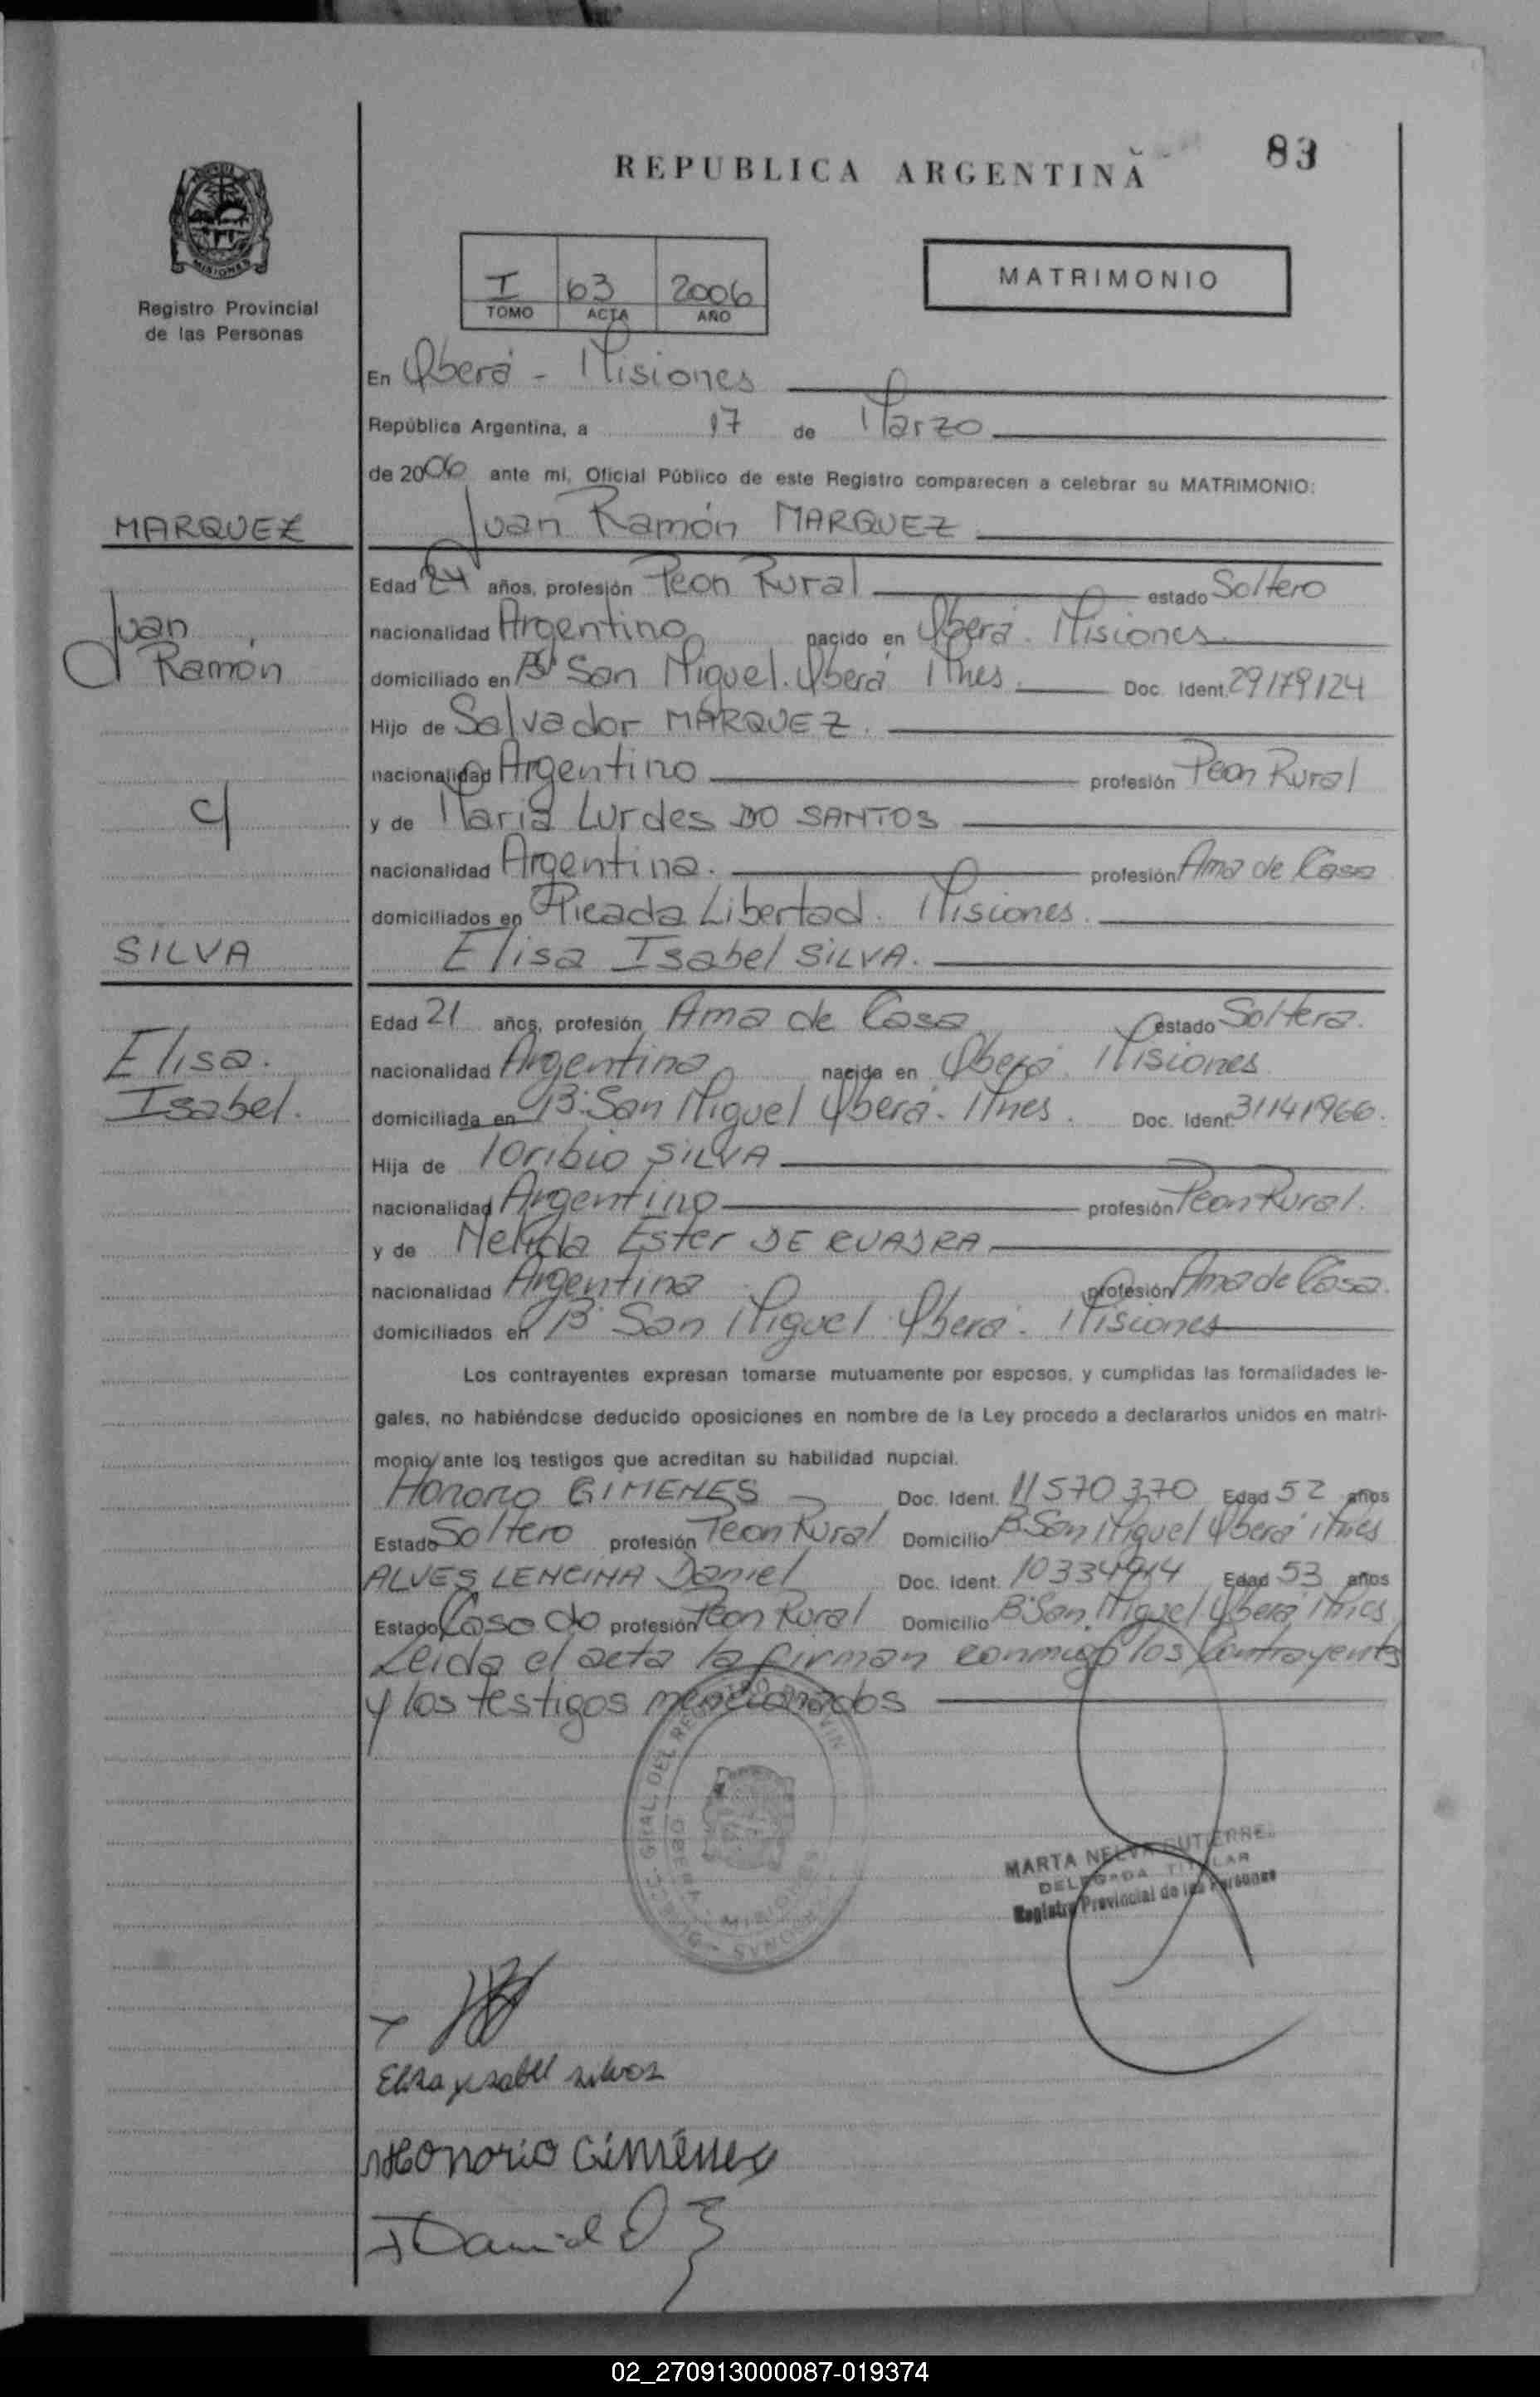 REPUBLICA ARGENTINA
83
MISIONES
Registro Provincial
de las Personas
I 63 2006
TOMO ACTA AÑO
MATRIMONIO
En Oberá - Misiones
República Argentina, a 17 de Marzo
de 2006 ante mi, Oficial Público de este Registro comparecen a celebrar su MATRIMONIO:
MARQUEZ
Juan Ramón MARQUEZ
Edad 24 años, profesión Peon Rural estado Soltero
Juan
Ramón
nacionalidad Argentino nacido en Oberá. Misiones
domiciliado en Bº San Miguel. Oberá Mnes. Doc. Ident. 29179124
Hijo de Salvador MARQUEZ.
nacionalidad Argentino profesión Peon Rural
c/
y de Maria Lurdes DO SANTOS
nacionalidad Argentina. profesión Ama de Casa
domiciliados en Picada Libertad. Misiones.
SILVA
Elisa Isabel SILVA.
Edad 21 años, profesión Ama de Casa estado Soltera.
Elisa.
Isabel.
nacionalidad Argentina nacida en Oberá. Misiones
domiciliada en B: San Miguel Oberá. Mnes. Doc. Ident. 31141966.
Hija de Toribio SILVA
nacionalidad Argentino profesión Peon Rural.
y de Nelida Ester DE CUADRA
nacionalidad Argentina profesión Ama de Casa.
domiciliados en B: San Miguel Oberá. Misiones
Los contrayentes expresan tomarse mutuamente por esposos, y cumplidas las formalidades le-
gales, no habiéndose deducido oposiciones en nombre de la Ley procedo a declararlos unidos en matri-
monio ante los testigos que acreditan su habilidad nupcial.
GIMENES Doc. Ident. 11570370 Edad 52 años
Estado Soltero profesión Peon Rural Domicilio B: San Miguel Oberá Mnes
ALVES LENCINA Daniel Doc. Ident. Edad 53 años
Estado Casado profesión Peon Rural Domicilio B: San Miguel Oberá Mnes
Leida el acta la firman conmigo los Contrayentes
y los testigos mencionados
MARTA NELVA GUTIERREZ
DELEGADA TITULAR
Registro Provincial de las Personas
Elisa ysabel silva
Honorio Giménez
Daniel
02_270913000087-019374